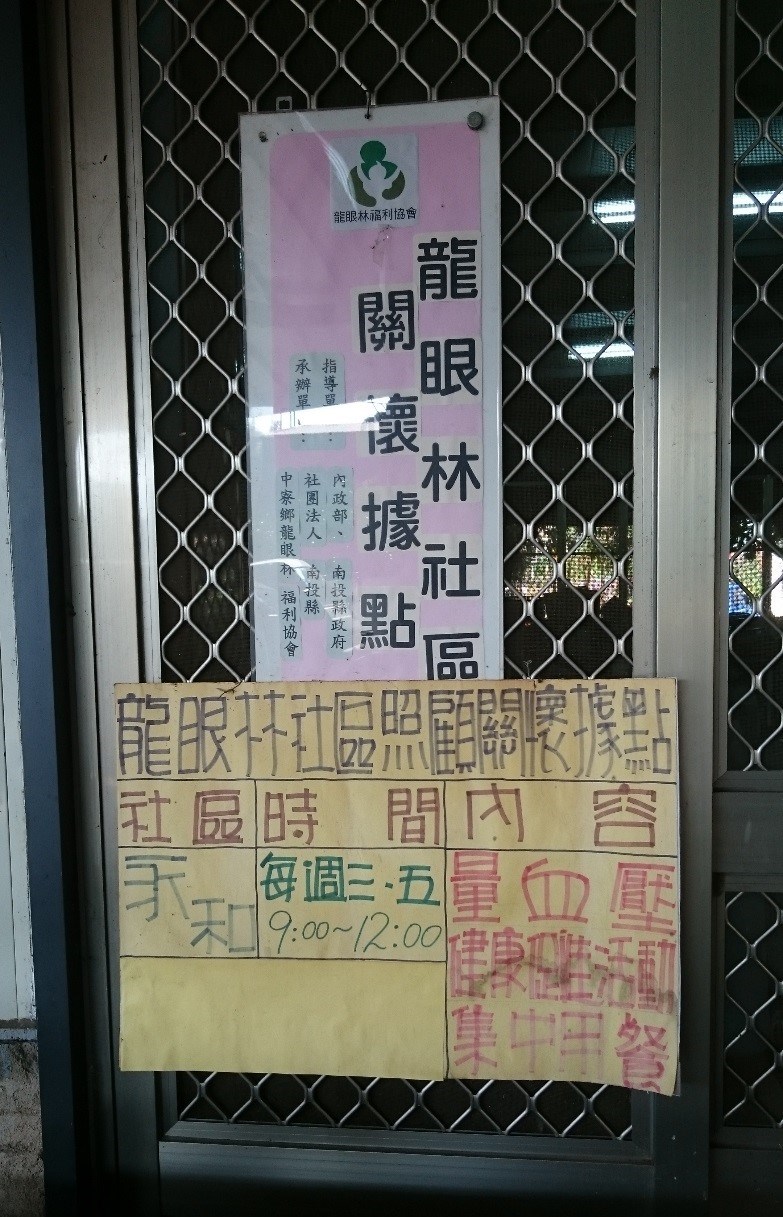 龍眼林福利協會
龍眼林社區
關懷據點
指導單 :
內政部、南投縣政府
承辦單 :
社團法人 南投縣
中寮鄉龍眼林 福利協會
龍眼林社區照顧關懷據點
社區 時間 內容
永和 每週三.五 量血壓
9:00~12:00 健康促進活動
集中用餐